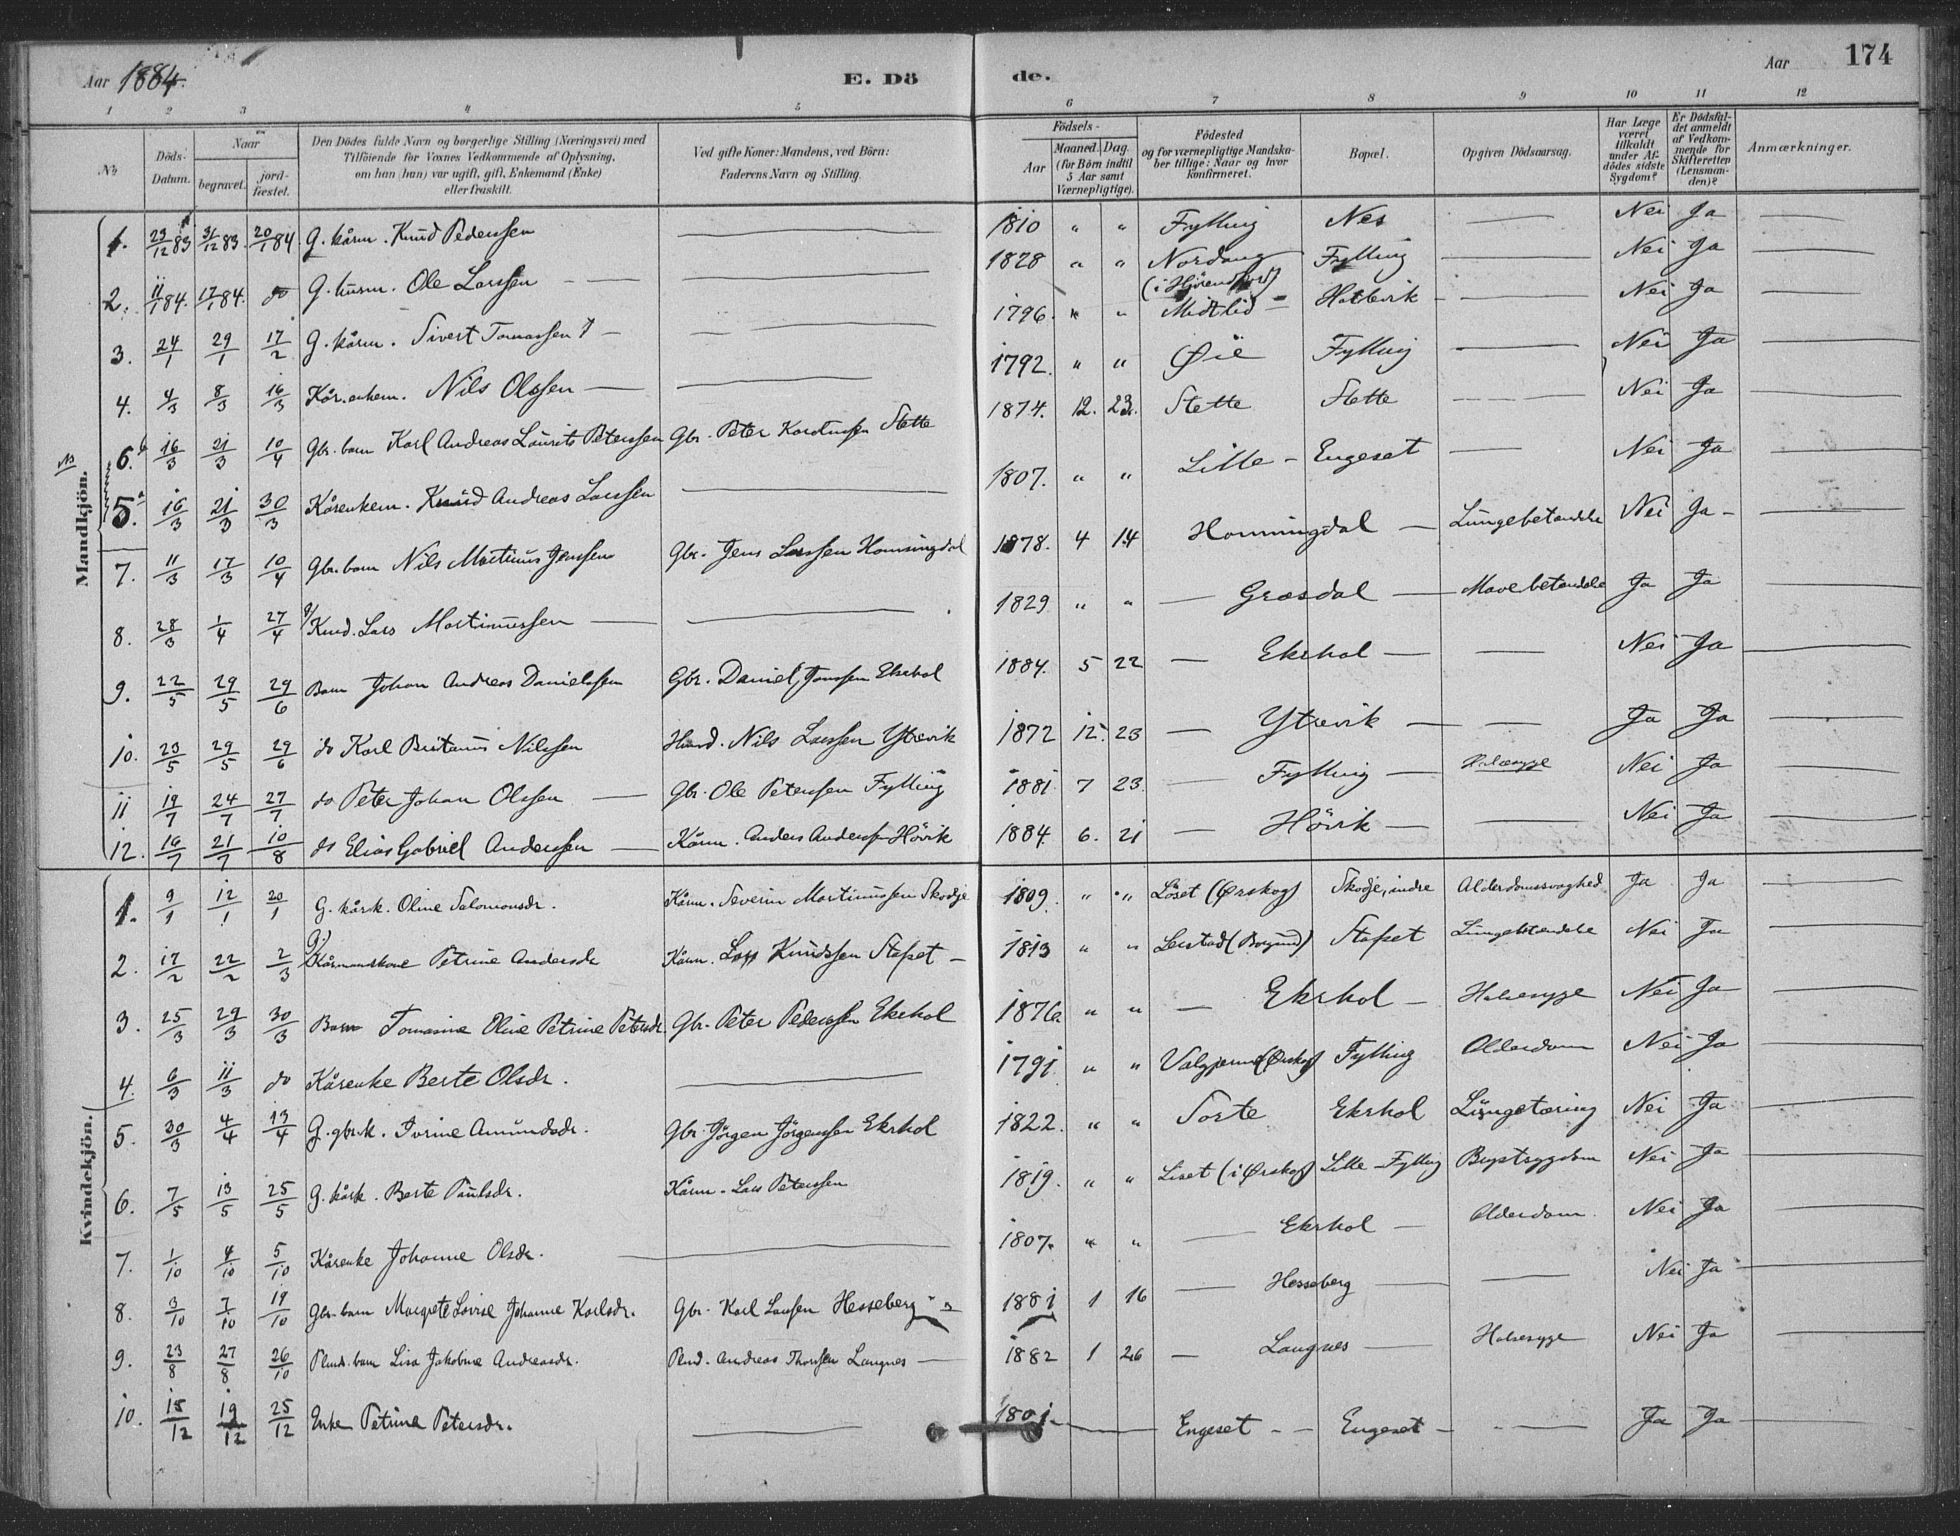 Aar 1884. E. Döde. Aar 174
1 2 3 4 5 6 7 8 9 10 11 12
No
Döds-Datum.
Naar
begravet.
jordfæstet.
Den Dödes fulde Navn og borgerlige Stilling (Næringsvei) med Tilföiende for Voxnes Vedkommende af Oplysning, om han (hun) var ugift, gift, Enkemand (Enke) eller fraskilt.
Ved gifte Koner: Mandens, ved Börn: Faderens Navn og Stilling.
Födsels-
Aar
Maaned. Dag.
(for Börn indtil 5 Aar samt Værnepligtige).
Födested og for værnepligtige Mandskaber tillige: Naar og hvor konfirmeret.
Bopæl.
Opgiven Dödsaarsag.
Har Læge været tilkaldt under Afdödes sidste Sygdom?
Er Dödsfaldet anmeldt af Vedkommende for Skifteretten (Lensmanden)?
Anmærkninger.
Mandkjön.
1. 29/12 83 31/12 83 20/1 84. G. kårm. Knud Pederssen — 1810 " " Fylling Nes — Nei Ja —
2. 11/1 84. 17/1 84. do G. husm. Ole Larssen — — 1828 " " Nordang (i Hörendfjord) Fylling — Nei Ja —
3. 24/1 29/1 17/2 G. kårm. Sivert Tomassen — — 1796. " " Midtlid — Hatlevik — Nei Ja —
4. 4/3 8/3 16/3 Kår.enkem. Nils Olssen — — 1792. " " Øie Fylling — Nei Ja —
6. b 16/3 21/3 10/4 Gbr. barn Karl Andreas Laurits Peterssen Gbr. Peter Stette 1874. 12. 23. Stette Stette — Nei Ja —
5. a 16/3 21/3 30/3 Kårenkem. Knud Andreas Larssen — 1807. " " Lille-Engeset — Nei Ja —
7. 11/3 17/3 10/4 Gbr. barn Nils Martinus Jenssen Gbr. Jens Larssen Honningdal 1878. 4 14 Honningdal — Lungebetændelse Nei Ja —
8. 28/3 1/4 27/4 g/ Lars Martinussen — — 1829 " " — Græsdal — Mavebetændelse Ja Ja —
9. 22/5 29/5 29/6 Barn Johan Andreas Danielssen Gbr. Daniel Jonssen Ekrhol 1884. 5 22 — Ekrhol — — Nei Ja —
10. 23/5 29/5 29/6 do Karl Britanus Nilssen Husmd. Nils Larssen Ytrevik 1872 12. 23 — Ytrevik — — Ja Ja —
11 19/7 24/7 27/7 do Peter Johan Olssen — Gbr. Ole Peterssen Fylling 1881 7 23. — Fylling — Halssyge Nei Ja —
12. 16/7 21/7 10/8 do Elias Gabriel Anderssen — Kårm. Anders Anderssen Hövik 1884. 6. 21 — Hövik — — Nei Ja —
Kvindekjön.
1. 9/1 12/1 20/1 G. kårk. Oline Salomonsdr. Kårm. Severin Martinussen Skodje 1809. " " Löset (Ørskog) Skodje, indre Alderdomssvaghed Ja Ja —
2. 17/2 22/2 2/3 g/ Kårmanskone Petrine Andersdr. Kårm. Lars Knudssen Stafset — 1813 " " (Borgund) Stafset Lungebetændelse Nei Ja —
3. 25/3 29/3 30/3 Barn Tomasine Oline Petrine Petersdr. Gbr. Peter Pederssen Ekrhol 1876 " " — Ekrhol — Halssyge Nei Ja —
4. 6/3 11/3 do Kårenke Berte Olsdr. — 1791. " " (Ørskog) Fylling Alderdom Nei Ja —
5. 30/3 4/4 13/4 G. gbr.k. Ivrine Amundsdr. Gbr. Jörgen Jörgenssen Ekrhol 1822. " " Sorte Ekrhol Lungetæring Nei Ja —
6. 7/5 13/5 25/5 G. kårk. Berte Paulsdr. Kårm. Lars Peterssen 1819. " " Liset (i Ørskog) Lille-Fylling Brystsygdom Nei Ja —
7. 1/10 4/10 5/10 Kårenke Johanne Olsdr. — 1807. " " — Ekrhol — Alderdom. Nei Ja —
8. 3/10 7/10 19/10 Gbr. barn Margrete Lovise Johanne Karlsdr. Gbr. Karl Larssen Hesseberg 1881 1 16 — Hesseberg — — Nei Ja —
9. 23/8 27/8 26/10 Plmd. barn Lisa Jakobine Andreasdr. Plmd. Andreas Langnes — 1882 1 26 — Langnes — Halssyge Nei Ja —
10. 15/12 19/12 25/12 Enke Petrine Petersdr. — 1801. — Engeset — Engeset — — Ja Ja —